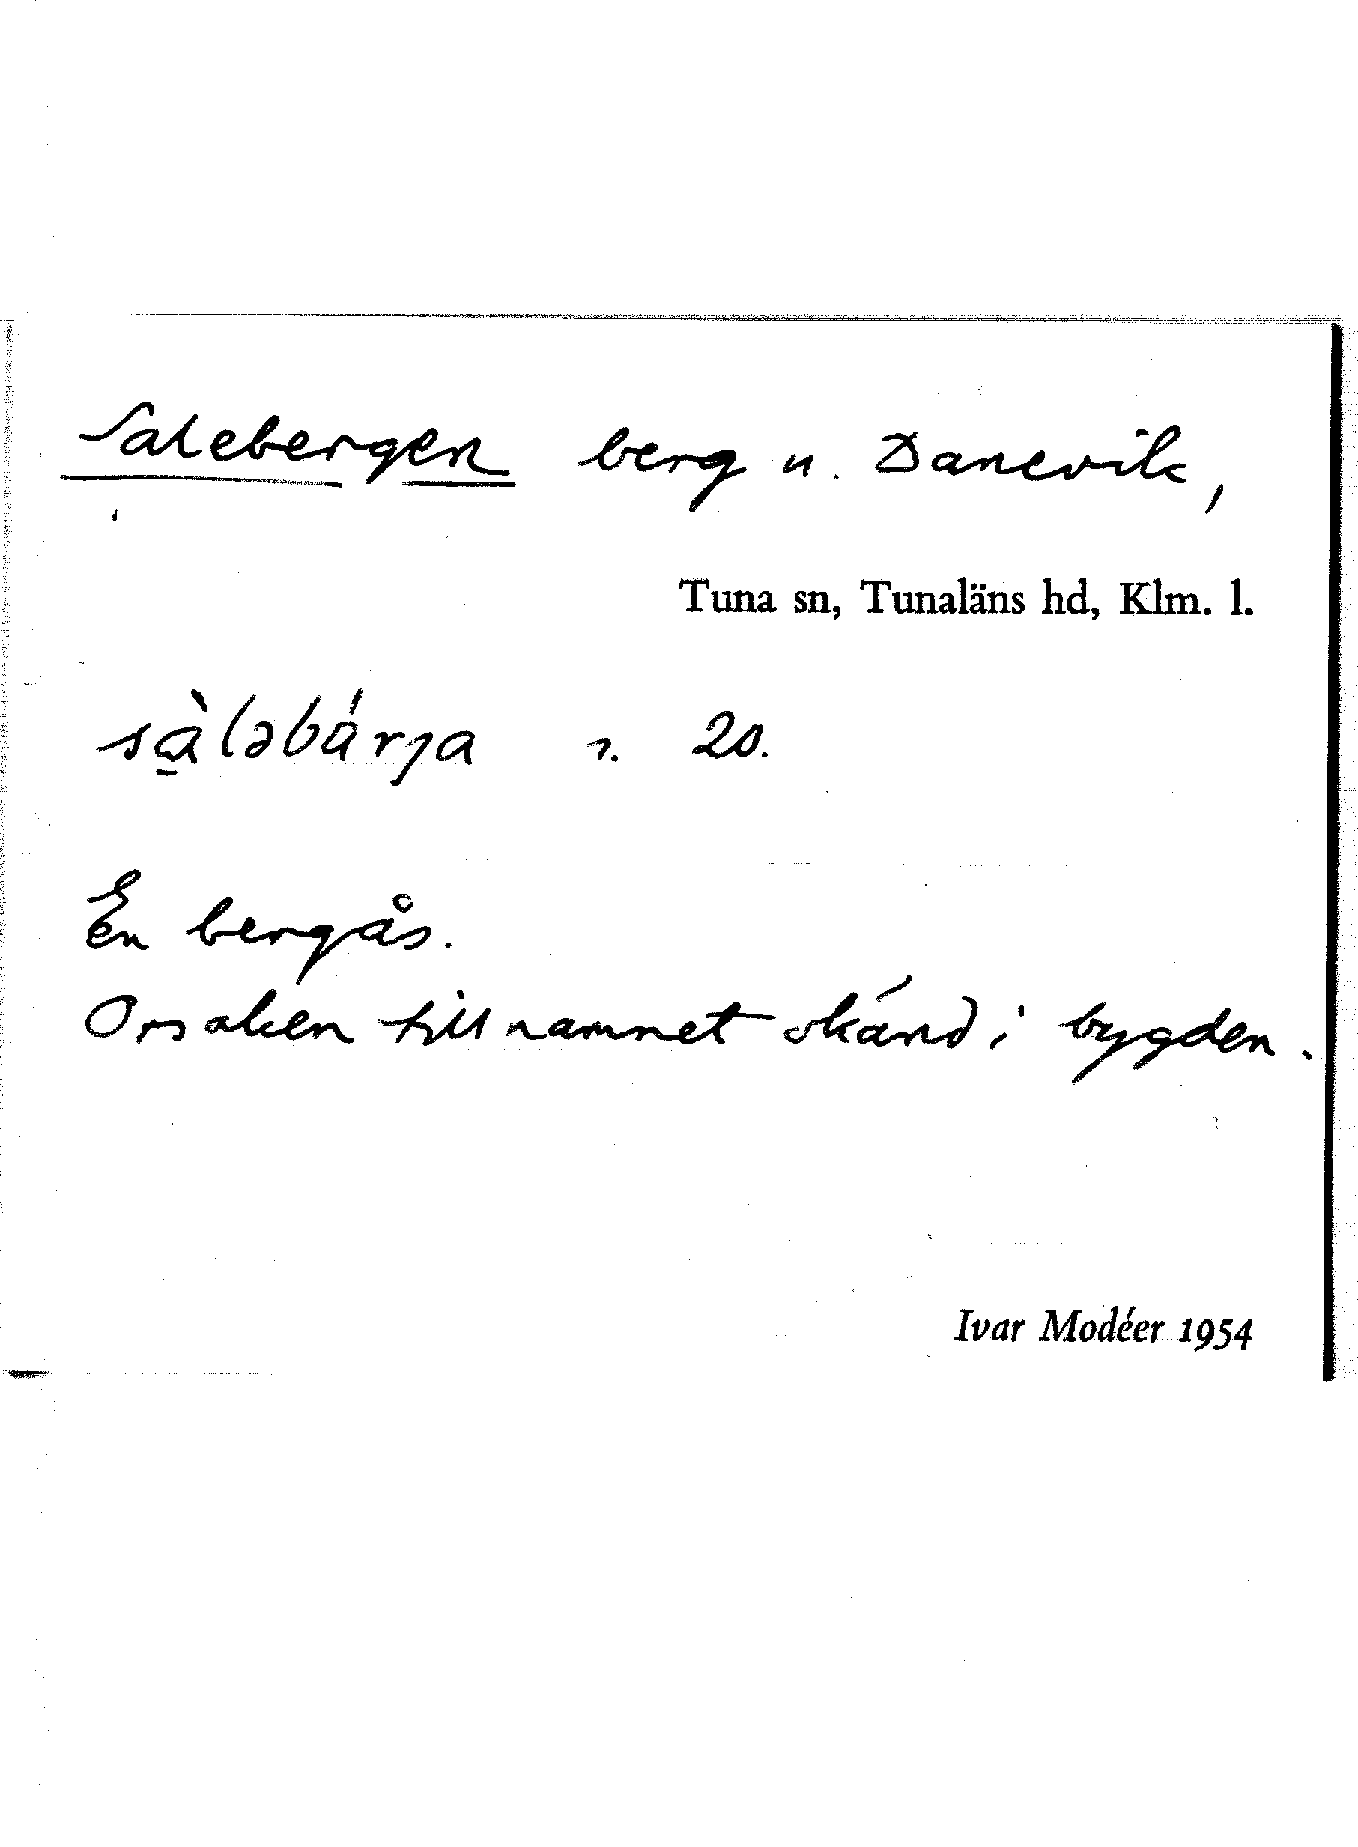 Salebergen berg u. Danevik,
Tuna sn, Tunaläns hd, Klm. l.
sàləbárja 20.
En bergås.
Orsaken till namnet okänd i bygden.
Ivar Modéer 1954